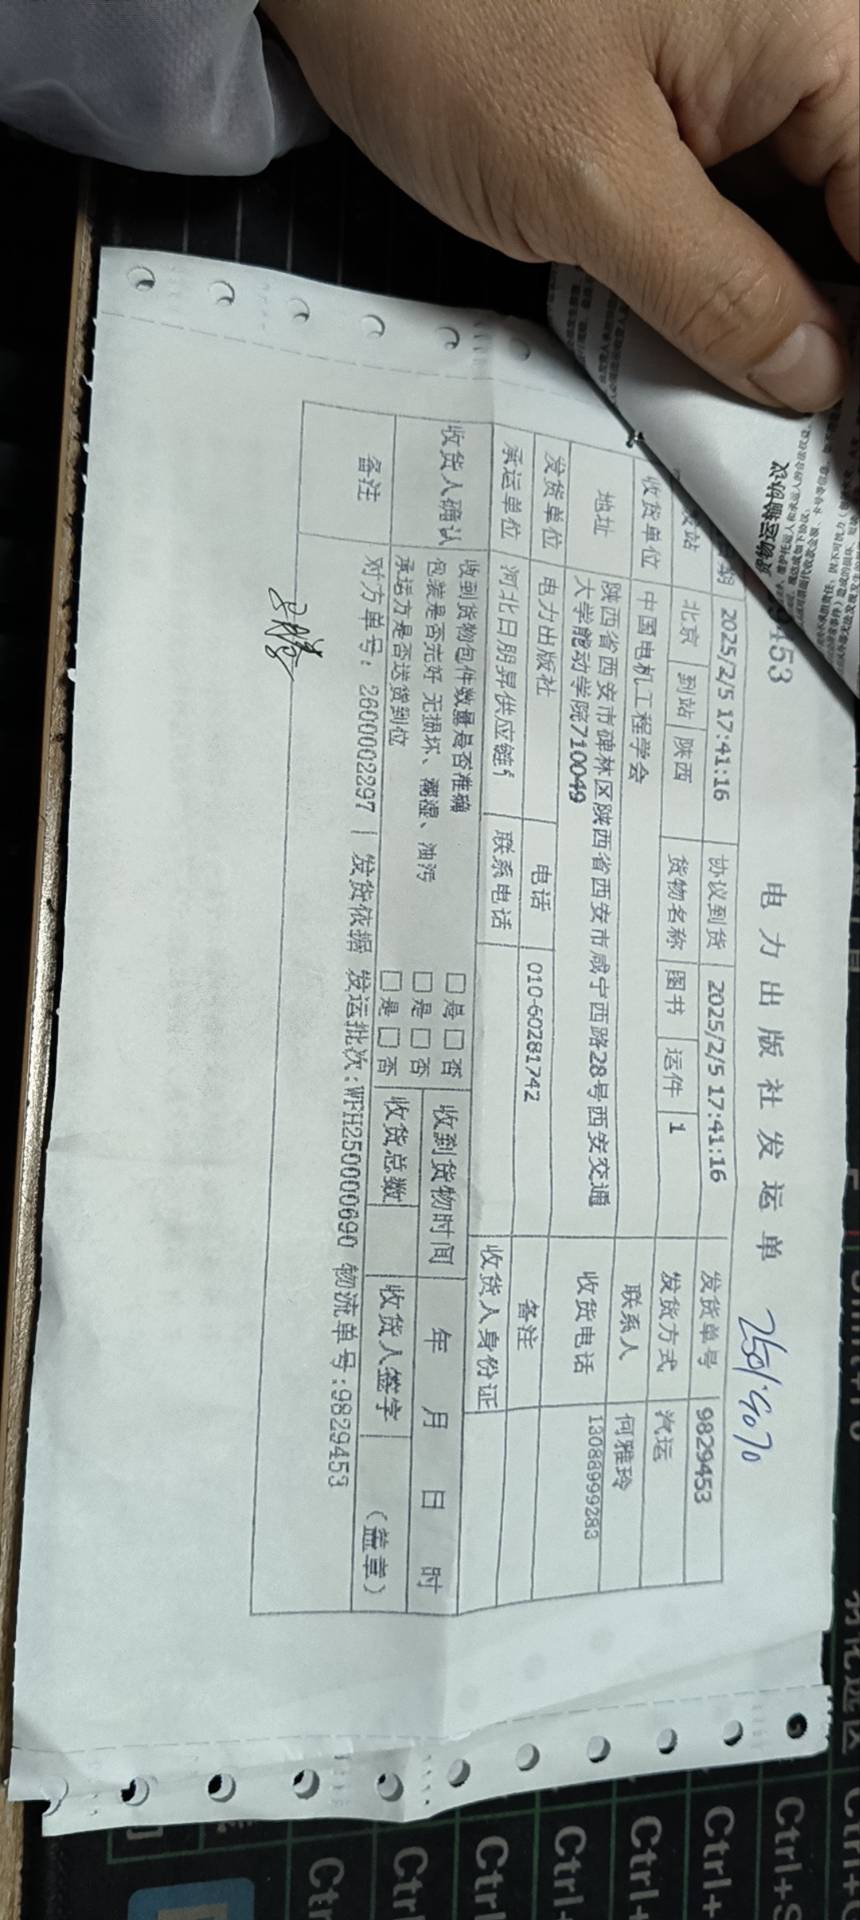 电力出版社发运单
9453
2025/2/5 17:41:16 协议到货 2025/2/5 17:41:16 发货单号 9829453
北京 到站 陕西 货物名称 图书 运件 1 发货方式 汽运
收货单位 中国电机工程学会 联系人 何雅玲
地址 陕西省西安市碑林区陕西省西安市咸宁西路28号西安交通大学能动学院710049 收货电话 13088999283
发货单位 电力出版社 电话 010-60281742 备注
承运单位 河北日朋昇供应链 联系电话 收货人身份证
收货人确认 收到货物包件数量是否准确 □是□否 收到货物时间 年 月 日 时
包装是否完好 无损坏、潮湿、油污 □是□否
承运方是否送货到位 □是□否 收货总数 收货人签字 (盖章)
备注 对方单号: 2600002297 | 发货依据 发运批次:WFH250000690 物流单号:9829453
货物运输协议
Ctrl+S
Ctrl+
Ctrl+
Ctrl
Ctrl
Ctrl